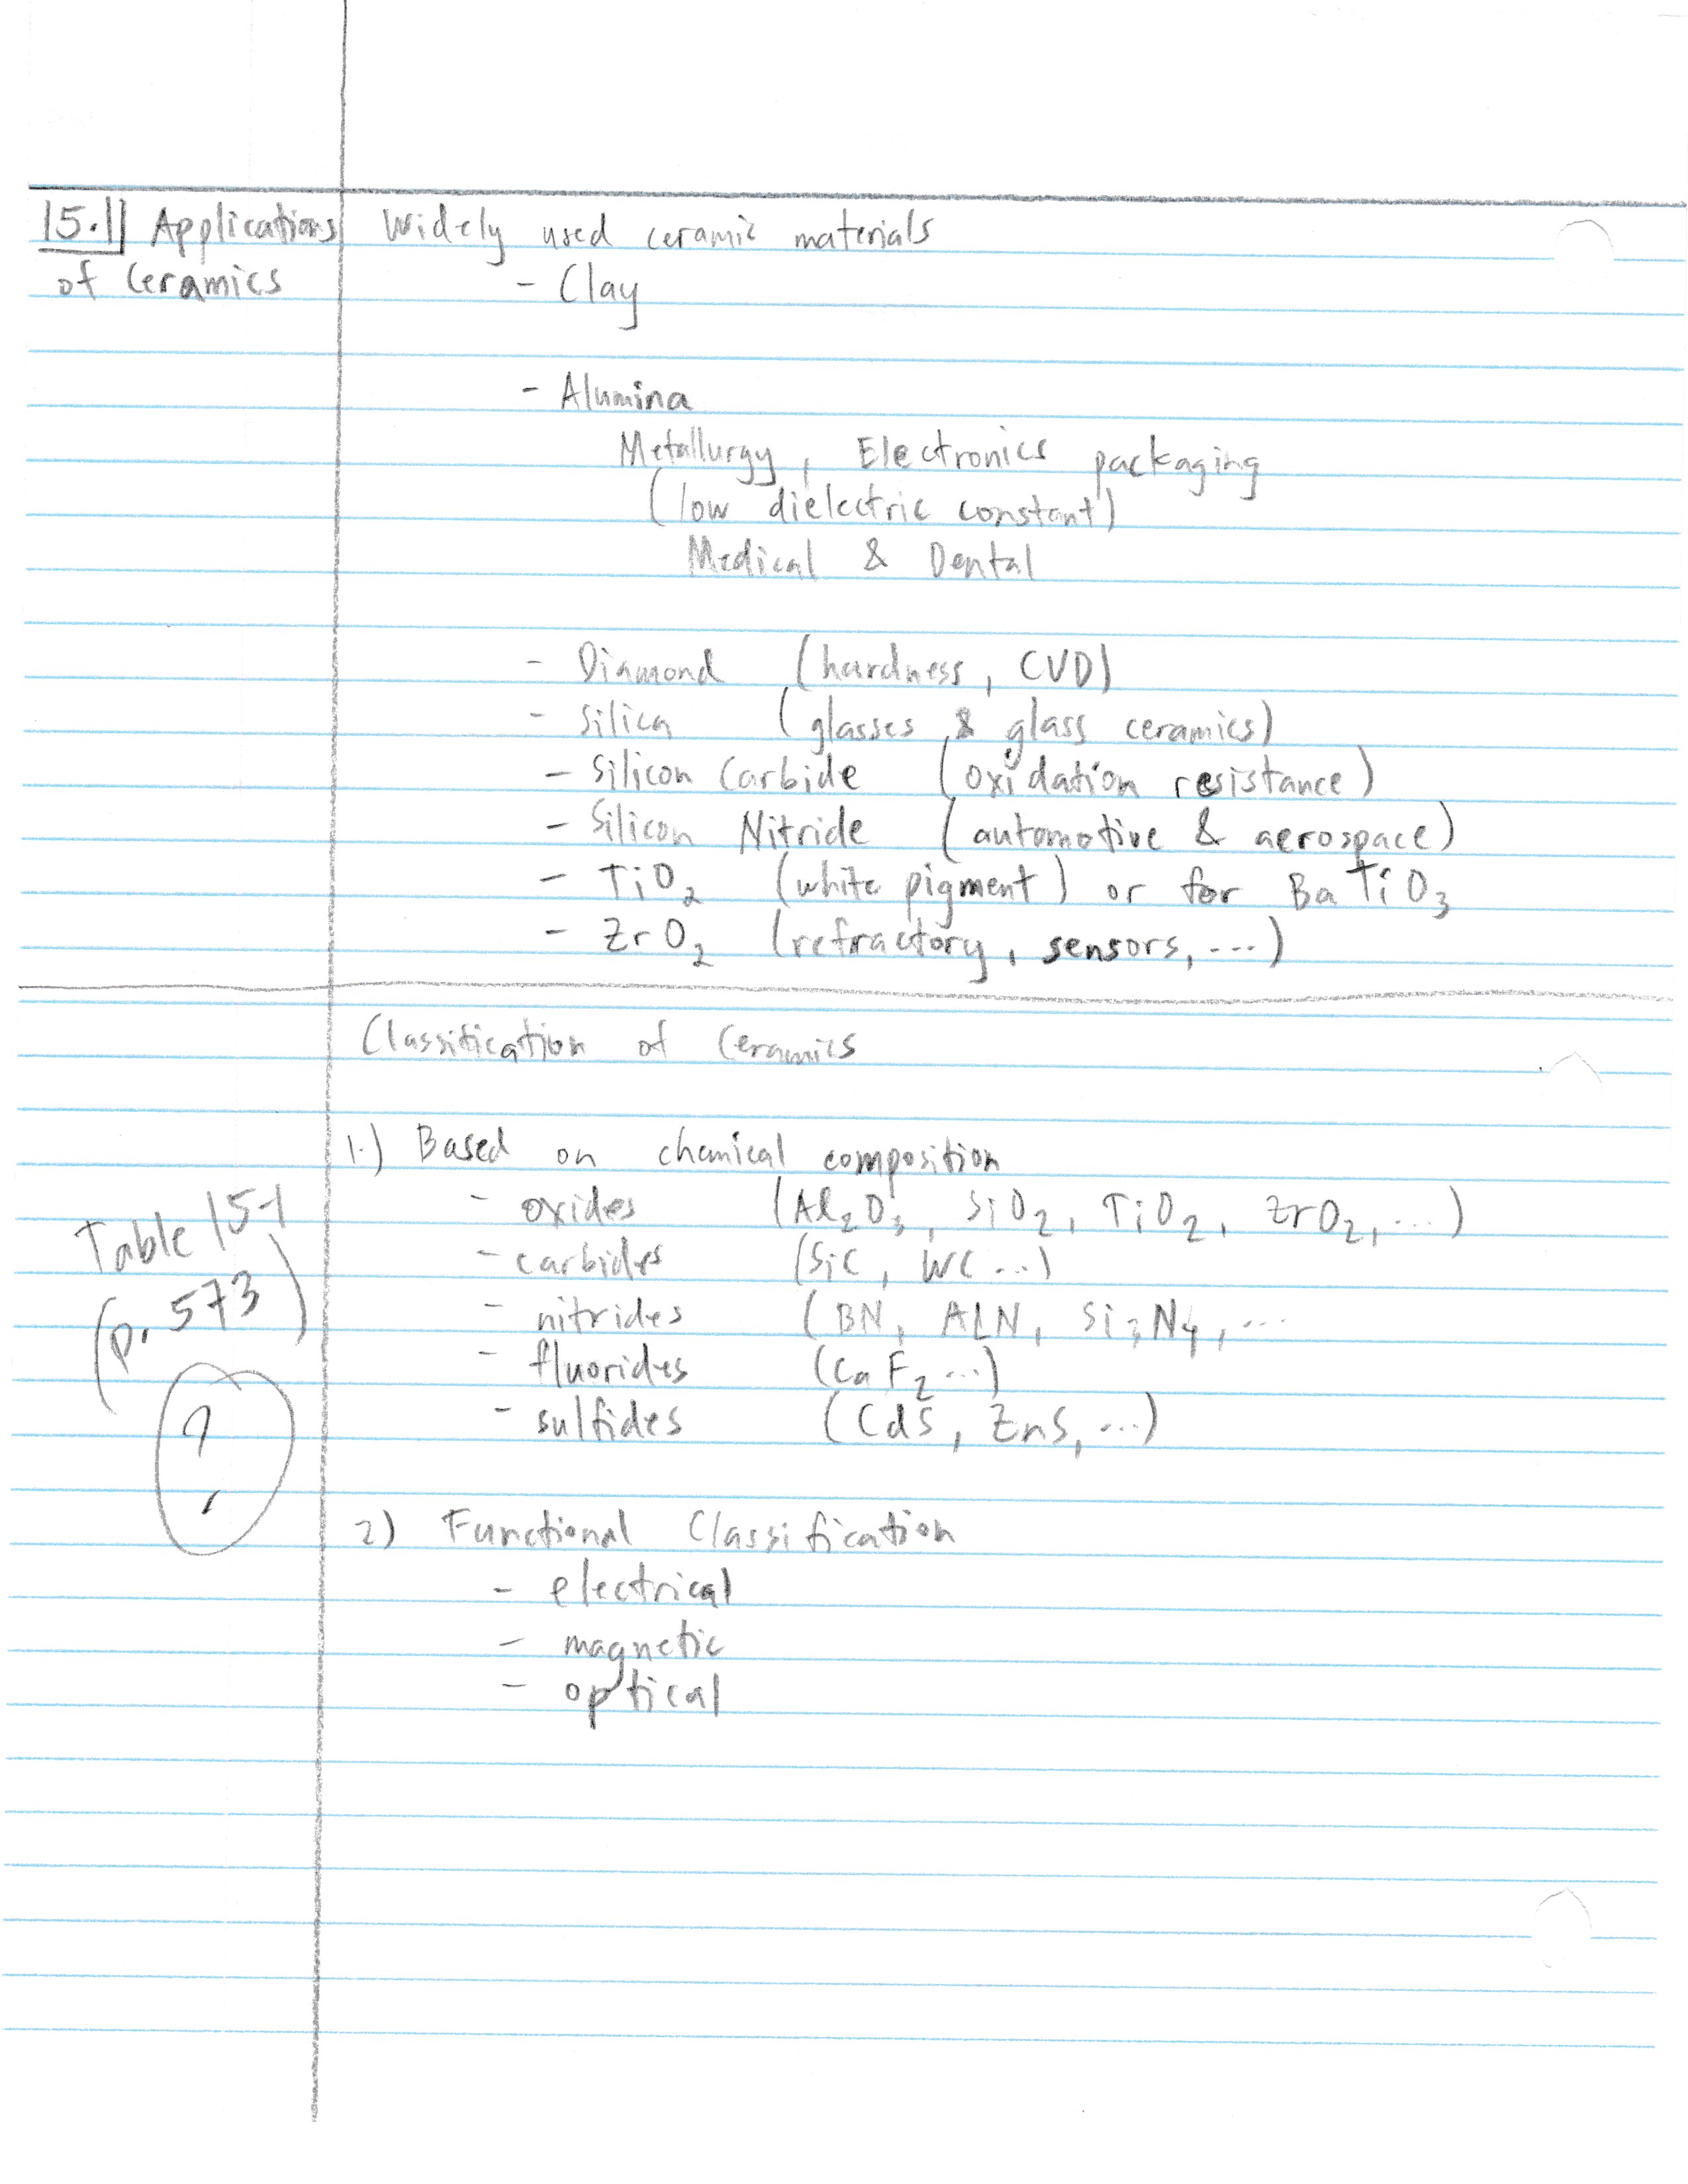 15.1 Applications
of Ceramics
Widely used ceramic materials
- Clay
- Alumina
Metallurgy, Electronics packaging
(low dielectric constant)
Medical & Dental
- Diamond (hardness, CVD)
- Silica (glasses & glass ceramics)
- Silicon Carbide (oxidation resistance)
- Silicon Nitride (automotive & aerospace)
- TiO2 (white pigment) or for BaTiO3
- ZrO2 (refractory, sensors, ...)
Classification of Ceramics
1.) Based on chemical composition
- oxides (Al2O3, SiO2, TiO2, ZrO2, ...)
- carbides (SiC, WC ...)
- nitrides (BN, ALN, Si3N4, ...
- fluorides (CaF2 ...)
- sulfides (CdS, ZnS, ...)
Table 15-1
(p. 573)
?
2) Functional Classification
- electrical
- magnetic
- optical